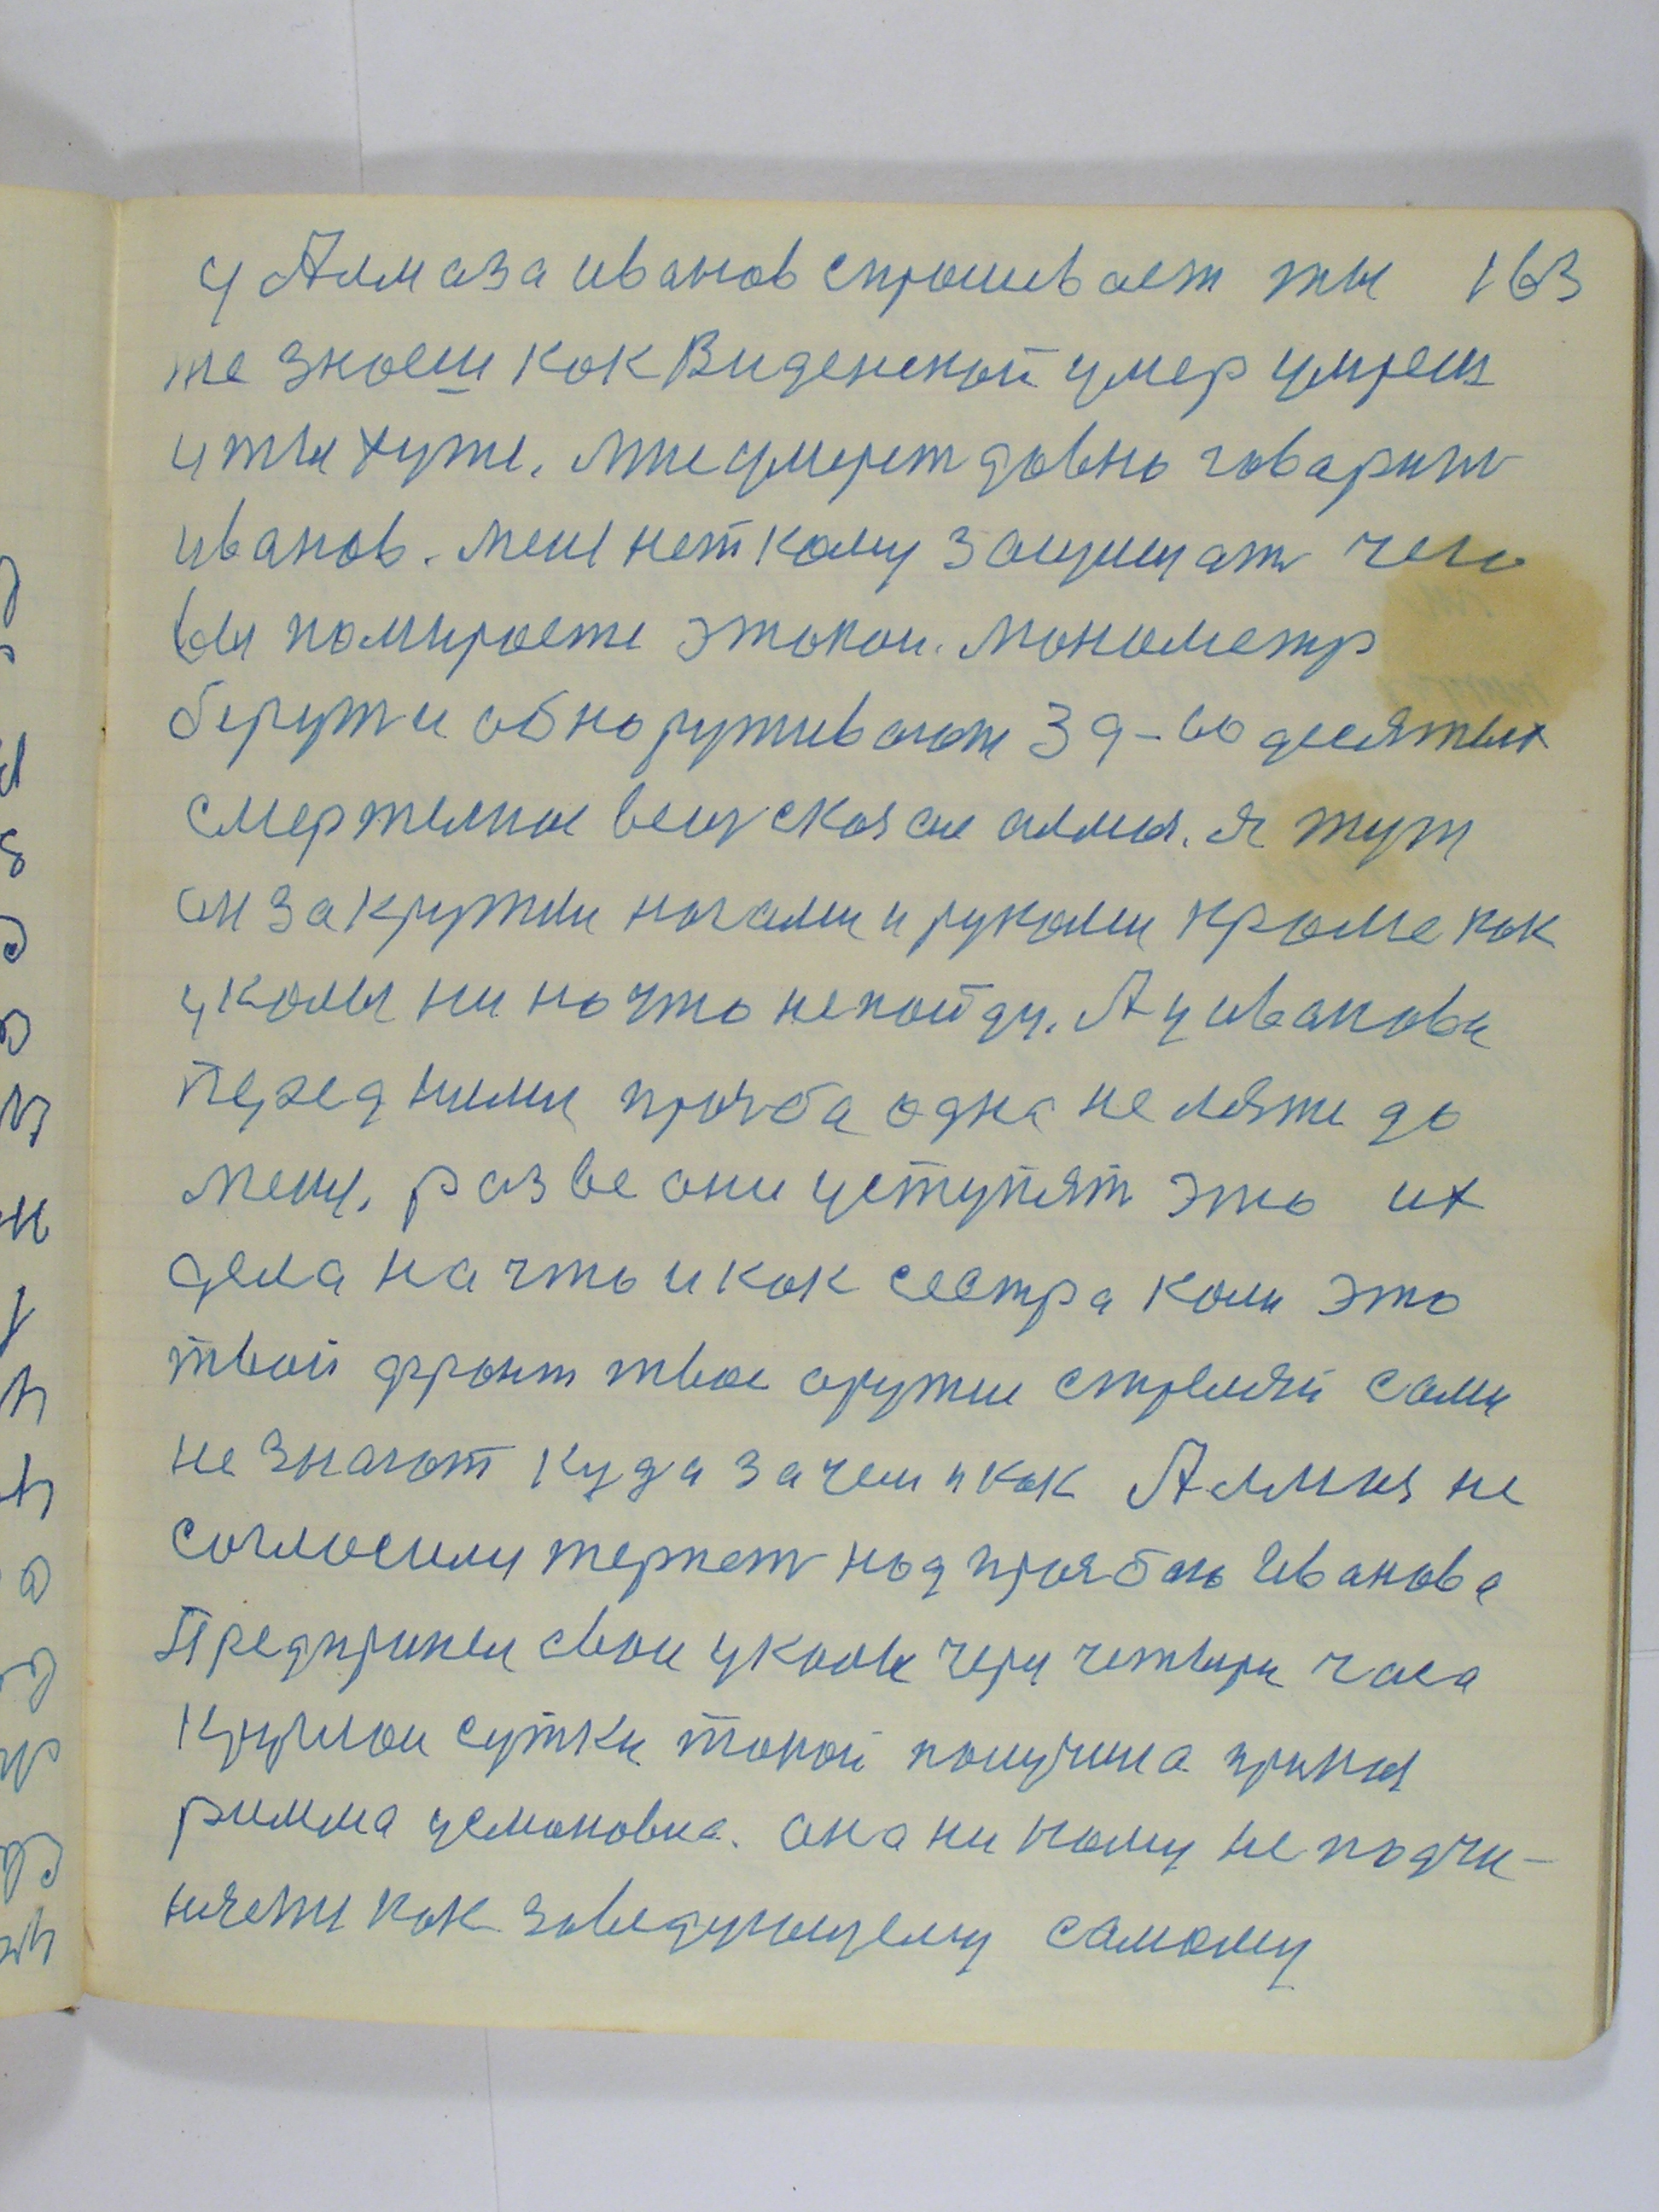 у Алмаза иванов спрошивает ты 163
не знаеш как Виденской умер умреш
и ты хуже. мне умерет давно говарит
иванов. меня нет кому защищат чего
вы помираете этакои. монометр
берут и обнаруживают 39-60 десятых
смертелное вещ сказал алмаз. я тут
он закружил ногами и руками кроме как
уколы ни на что не пойду. А у иванова
перед ними прозба одна не ляжи до
меня. разве они уступят это их
дела на что и как сестра коли это
твой фронт твое оружие стреляй сами
не знают куда зачем и как не
согласили терпет над прозбою Иванова
Предпринел свои уколы через четыри часа
круглои сутки такой получила приказ
римма усмановна. она ни кому не подчи-
няетя как заведующему самому